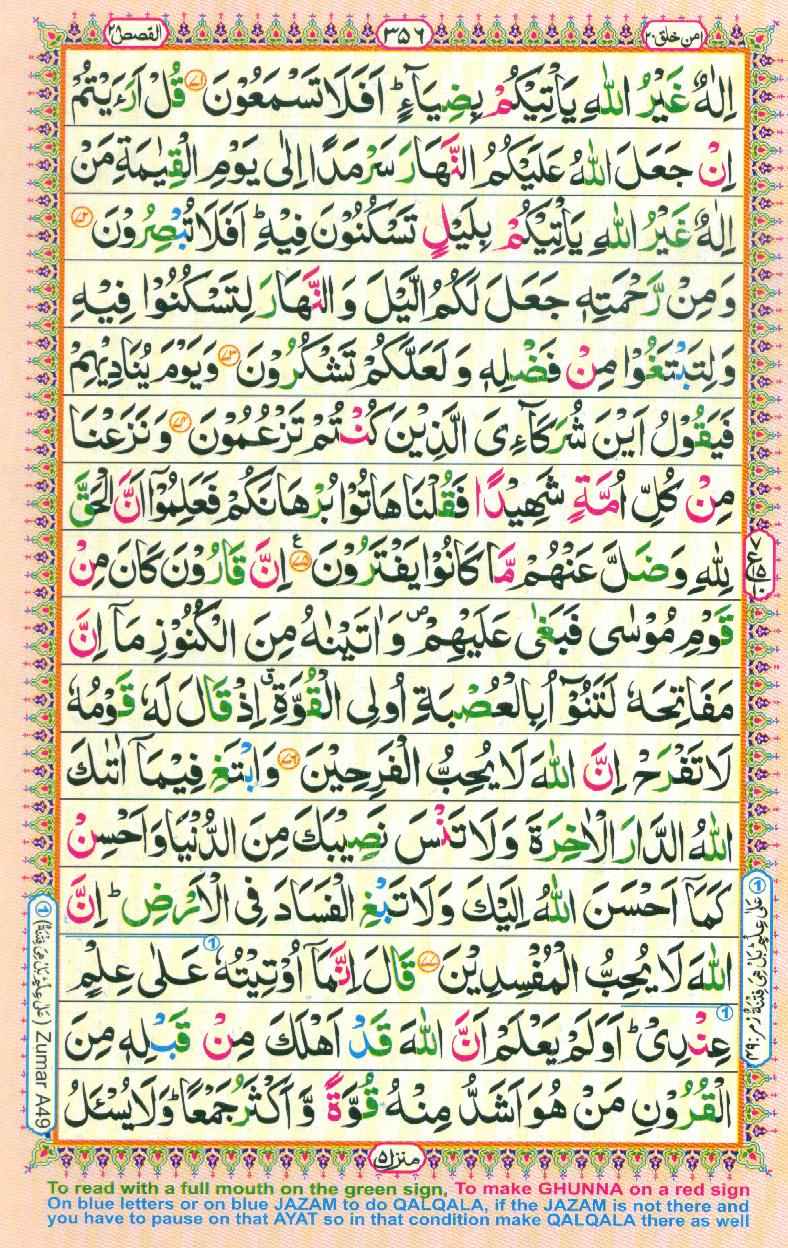 امن خلق ۲۰
۳۵۶
القصص ۲۸
اِلٰهٌ غَيْرُ اللّٰهِ يَاْتِيْكُمْ بِضِيَآءٍ ؕ اَفَلَا تَسْمَعُوْنَ ﴿۷۱﴾ قُلْ اَرَءَيْتُمْ
اِنْ جَعَلَ اللّٰهُ عَلَيْكُمُ النَّهَارَ سَرْمَدًا اِلٰى يَوْمِ الْقِيٰمَةِ مَنْ
اِلٰهٌ غَيْرُ اللّٰهِ يَاْتِيْكُمْ بِلَيْلٍ تَسْكُنُوْنَ فِيْهِ ؕ اَفَلَا تُبْصِرُوْنَ ﴿۷۲﴾
وَ مِنْ رَّحْمَتِهٖ جَعَلَ لَكُمُ الَّيْلَ وَ النَّهَارَ لِتَسْكُنُوْا فِيْهِ
وَلِتَبْتَغُوْا مِنْ فَضْلِهٖ وَ لَعَلَّكُمْ تَشْكُرُوْنَ ﴿۷۳﴾ وَيَوْمَ يُنَادِيْهِمْ
فَيَقُوْلُ اَيْنَ شُرَكَآءِىَ الَّذِيْنَ كُنْتُمْ تَزْعُمُوْنَ ﴿۷۴﴾ وَ نَزَعْنَا
مِنْ كُلِّ اُمَّةٍ شَهِيْدًا فَقُلْنَا هَاتُوْا بُرْهَانَكُمْ فَعَلِمُوْۤا اَنَّ الْحَقَّ
لِلّٰهِ وَضَلَّ عَنْهُمْ مَّا كَانُوْا يَفْتَرُوْنَ ﴿۷۵﴾ ع اِنَّ قَارُوْنَ كَانَ مِنْ
قَوْمِ مُوْسٰى فَبَغٰى عَلَيْهِمْ ۪ وَ اٰتَيْنٰهُ مِنَ الْكُنُوْزِ مَاۤ اِنَّ
مَفَاتِحَهٗ لَتَنُوْٓاُ بِالْعُصْبَةِ اُولِى الْقُوَّةِ ۗ اِذْ قَالَ لَهٗ قَوْمُهٗ
لَا تَفْرَحْ اِنَّ اللّٰهَ لَا يُحِبُّ الْفَرِحِيْنَ ﴿۷۶﴾ وَابْتَغِ فِيْمَاۤ اٰتٰىكَ
اللّٰهُ الدَّارَ الْاٰخِرَةَ وَلَا تَنْسَ نَصِيْبَكَ مِنَ الدُّنْيَا وَاَحْسِنْ
كَمَاۤ اَحْسَنَ اللّٰهُ اِلَيْكَ وَلَا تَبْغِ الْفَسَادَ فِى الْاَرْضِ ؕ اِنَّ
اللّٰهَ لَا يُحِبُّ الْمُفْسِدِيْنَ ﴿۷۷﴾ قَالَ اِنَّمَاۤ اُوْتِيْتُهٗ عَلٰى عِلْمٍ
عِنْدِىْ ؕ اَوَلَمْ يَعْلَمْ اَنَّ اللّٰهَ قَدْ اَهْلَكَ مِنْ قَبْلِهٖ مِنَ
الْقُرُوْنِ مَنْ هُوَ اَشَدُّ مِنْهُ قُوَّةً وَّ اَكْثَرُ جَمْعًا ؕ وَلَا يُسْـَٔلُ
① عَلٰى عِلْمٍ ؕ بَلْ هِىَ فِتْنَةٌ زمر:۴۹
① (عَلٰى عِلْمٍ بَلْ هِىَ فِتْنَةٌ) Zumar A49
منزل ۵
To read with a full mouth on the green sign, To make GHUNNA on a red sign
On blue letters or on blue JAZAM to do QALQALA, if the JAZAM is not there and
you have to pause on that AYAT so in that condition make QALQALA there as well